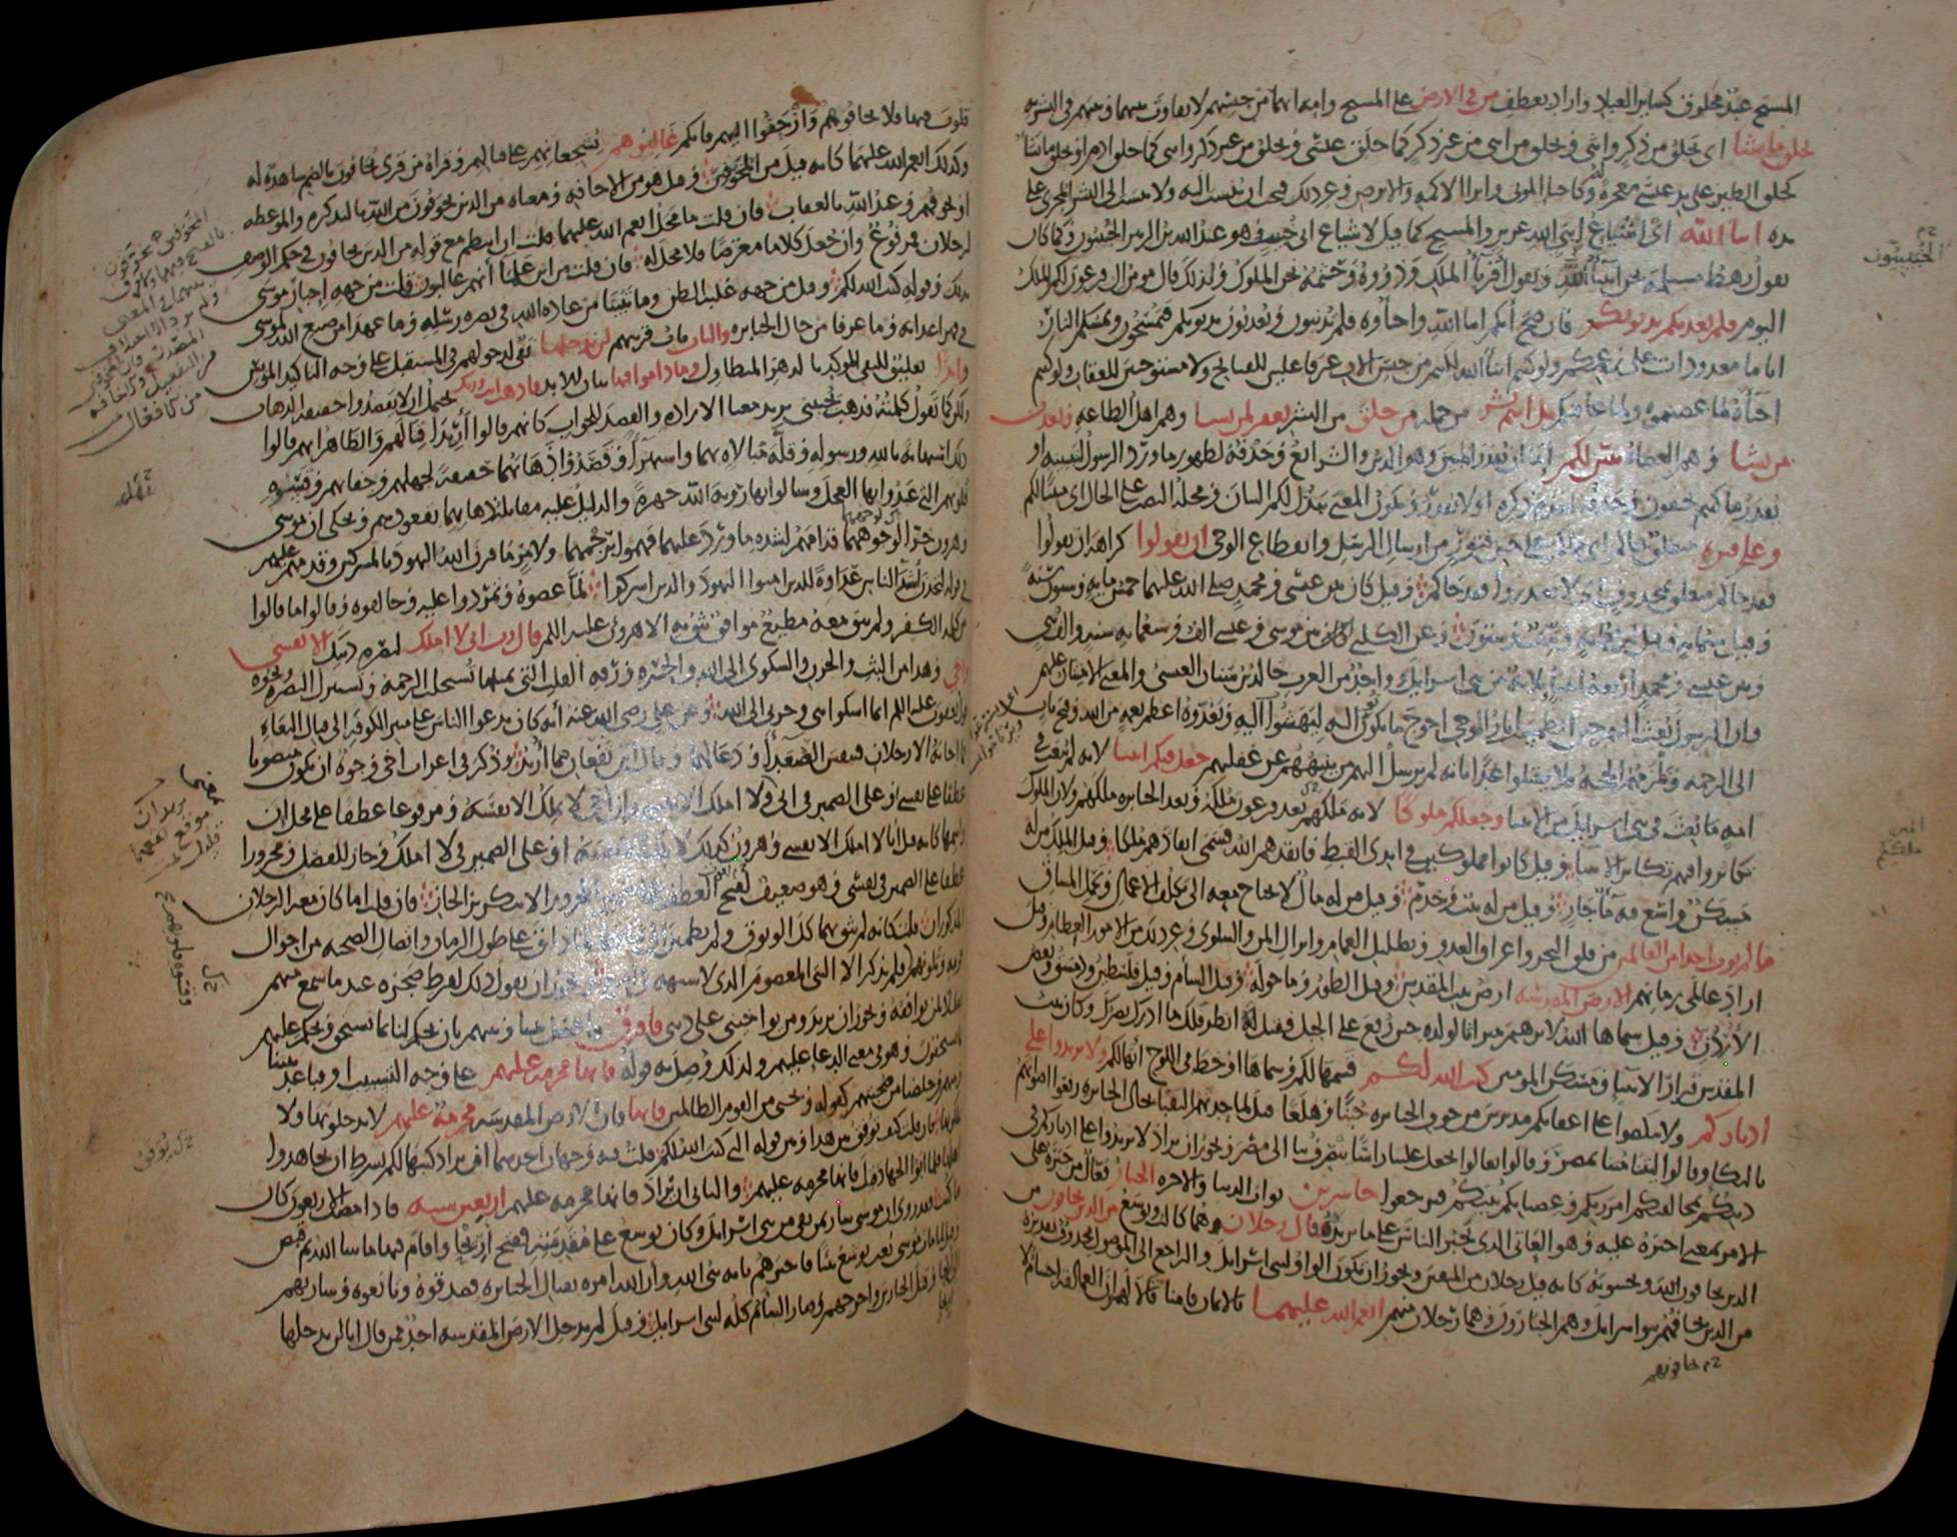 المسيح عبد مخلوق كسائر العباد واراد بعطف من في الارض على المسيح وامه انهما من جنسهم لا تفاوت بينهما وبينهم في البشرية
يخلق ما يشا اى يخلق من ذكر وانثى ويخلق من انثى من غير ذكر كما خلق عيسى ويخلق من غير ذكر وانثى كما خلق ادم او يخلق ما يشا
كخلق الطير على يد عيسى معجزة له وكاحيا الموتى وابرا الاكمه والابرص وغير ذلك فيجب ان ينسب اليه ولا ينسب الى البشر المجرى على
يده ابنا الله اى اشياع ابنى الله عزير والمسيح كما قيل لاشياع ابى خبيب وهو عبد الله بن الزبير الخبيبون وكما كان
يقول رهط مسيلمة نحن ابنا الله ويقول اقربا الملك وذووه وحشمه نحن الملوك ولذلك قال مومن ال فرعون لكم الملك
اليوم فلم يعذبكم بذنوبكم فان صح انكم ابنا الله واحباوه فلم تذنبون وتعذبون بذنوبكم فتمسخون وتمسكم النار
اياما معدودات على زعمكم ولو كنتم ابنا الله لكنتم من جنس الاب غير فاعلين للقبايح ولا مستوجبين للعقاب ولو كنتم
احباه لما عصيتموه ولما عاقبكم بل انتم بشر من جملة من خلق من البشر يغفر لمن يشا وهم اهل الطاعة ويعذب
من يشا وهم العصاة يبين لكم اما ان يقدر المبين وهو الدين والشرائع وحذفه لظهور ما ورد الرسول لتبيينه او
يقدر ما كنتم تخفون وحذفه لتقدم ذكره او لا يقدر ويكون المعنى يبذل لكم البيان ومحله النصب على الحال اى مبينا لكم
وعلى فترة متعلق بجاكم اى جاكم على حين فتور من ارسال الرسل وانقطاع الوحى ان تقولوا كراهة ان تقولوا
فقد جاكم متعلق بمحذوف اى لا تعتذروا فقد جاكم وقيل كان بين عيسى ومحمد صلى الله عليهما خمس مايه وستون سنة
وقيل ستمايه وقيل اربعمايه ونيف وستون وعن الكلبى كان بين موسى وعيسى الف وسبعمايه سنه والف نبى
وبين عيسى ومحمد اربعة انبيا ثلاثة من بنى اسرايل وواحد من العرب خالد بن سنان العبسى والمعنى الامتنان عليهم
وان الرسول بعث اليهم حين انطمست اثار الوحى احوج ما يكون اليه ليهشوا اليه ويعدوه اعظم نعمه من الله وفتح باب
الى الرحمه وتلزمهم الحجه فلا يعتلوا غدا بانه لم يرسل اليهم من ينبههم عن غفلتهم جعل فيكم انبيا لانه لم يبعث فى
امه ما بعث فى بنى اسرايل من الانبيا وجعلكم ملوكا لانه ملكهم بعد فرعون ملكه وبعد الجبابره ملكهم ولان الملوك
تكاثروا فيهم تكاثر الانبيا وقيل كانوا مملوكين فى ايدى القبط فانقذهم الله فسمى انقاذهم ملكا وقيل الملك من له
مسكن واسع فيه ما جار وقيل من له بيت وخدم وقيل من له مال لا يحتاج معه الى تكلف الاعمال وتحمل المشاق
ما لم يوت احدا من العالمين من فلق البحر واغراق العدو وتظليل الغمام وانزال المن والسلوى وغير ذلك من الامور العظام وقيل
اراد عالمى زمانهم الارض المقدسه ارض بيت المقدس وقيل الطور وما حوله وقيل الشام وقيل فلسطين ودمشق وبعض
الاردن وقيل سماها الله لابرهيم ميراثا لولده حين رفع على الجبل فقيل له انظر فلك ما ادرك بصرك وكان بيت
المقدس قرار الانبيا ومسكن المومنين كتب الله لكم قسمها لكم وسماها او خط فى اللوح انها لكم ولا ترتدوا على
ادباركم ولا تنكصوا على اعقابكم مدبرين من خوف الجبابره جبنا وهلعا قيل لما حدثهم النقبا بحال الجبابره رفعوا اصواتهم
بالبكا وقالوا ليتنا متنا بمصر وقالوا تعالوا نجعل علينا راسا ينصرف بنا الى مصر ويجوز ان يراد لا ترتدوا على ادباركم فى
دينكم بمخالفتكم امر ربكم وعصيانكم نبيكم فترجعوا خاسرين ثواب الدنيا والاخره الجبار فعال من جبره على
الامر بمعنى اجبره عليه وهو العاتى الذى يجبر الناس على ما يريد قال رجلان هما كالب ويوشع من الذين يخافون من
الذين يخافون الله ويخشونه كانه قيل رجلان من المتقين ويجوز ان تكون الواو لبنى اسرايل والراجع الى الموصول محذوف تقديره
من الذين يخافهم بنوا اسرايل وهم الجبارون وهما رجلان منهم انعم الله عليهما بالايمان فامنا قالا لهم ان العمالقة اجسام لا
قلوب فيها فلا تخافوهم وازحفوا اليهم فانكم غالبوهم يشجعانهم على قتالهم وقراة من قرى يخافون بالضم شاهدة له
وكذلك انعم الله عليهما كانه قيل من المخوفين وقيل هو من الاخافه ومعناه من الذين يخوفون من الله بالتذكره والموعظه
او يخوفهم وعيد الله بالعقاب فان قلت ما محل انعم الله عليهما قلت ان انتظم مع قوله من الذين يخافون فى حكم الوصف
لرجلان فمرفوع وان جعل كلاما معترضا فلا محل له فان قلت من اين علما انهم غالبون قلت من جهة اخبار موسى
بذلك وقوله كتب الله لكم وقيل من جهه غلبة الظن وما تبينا من عادة الله فى نصره رسله وما عهدا من صنع الله لموسى
فى قهر اعدايه وما عرفا من حال الجبابره والباب باب قريتهم لن ندخلها نفى لدخولهم فى المستقبل على وجه التاكيد المويس
وابدا تعليق للنفى الموكد بالدهر المتطاول وما داموا فيها بيان للابد فاذهب انت وربك يحتمل ان لا يقصدوا حقيقة الذهاب
ولكن كما تقول كلمته فذهب يجيبنى يريد معنى الارادة والقصد للجواب كانهم قالوا اريدا قتالهم والظاهر انهم قالوا
ذلك استهانة بالله ورسوله وقلة مبالاه بهما واستهزا وقصدوا ذهابهما حقيقة لجهلهم وجفايهم وقسوه
قلوبهم التى عبدوا بها العجل وسالوا بها روية الله جهرة والدليل عليه مقابلة ذهابهما بقعودهم ويحكى ان موسى
وهرون خرا لوجوههما قدامهم لشدة ما ورد عليهما فهموا برجمهما ولامر ما قرن الله اليهود بالمشركين وقدمهم عليهم
فى قوله لتجدن اشد الناس عداوة للذين امنوا اليهود والذين اشركوا لما عصوه وتمردوا عليه وخالفوه وقالوا ما قالوا
من كلمة الكفر ولم يبق معه مطيع موافق يثق به الا هرون عليه السلم قال رب انى لا املك لنصرة دينك الا نفسى
واخى وهذا من البث والحزن والشكوى الى الله والحسره ورقة القلب التى بمثلها تستجلب الرحمه وتستنزل النصرة ونحوه
قول يعقوب عليه السلم انما اشكوا بثى وحزنى الى الله وعن على رضى الله عنه انه كان يدعوا الناس على منبر الكوفه الى قتال البغاه
فما اجابه الا رجلان فتنفس الصعدا ودعا لهما وقال اين تقعان مما اريد وذكر فى اعراب اخى وجوه ان يكون منصوبا
عطفا على نفسى او على الضمير فى انى ولا املك الا نفسى وان اخى لا يملك الا نفسه ومرفوعا عطفا على محل ان
واسمها كانه قيل انا لا املك الا نفسى وهرون كذلك لا يملك الا نفسه او على الضمير فى لا املك وجاز للفصل ومجرورا
عطفا على الضمير فى نفسى وهو ضعيف لقبح العطف على ضمير المجرور الا بتكرير الجار فان قلت اما كان معه الرجلان
المذكوران قلت كانه لم يثق بهما كل الوثوق ولم يطمئن الى ثباتهما لما ذاق على طول الزمان واتصال الصحبه من احوال
قومه وتلونهم فلم يذكر الا النبى المعصوم الذى لا شبهه فى امره ويجوز ان يقول ذلك لفرط ضجره عند ما سمع منهم
تقليلا لمن يوافقه ويجوز ان يريد ومن يواخينى على دينى فافرق فافصل بيننا وبينهم بان تحكم لنا بما نستحق وتحكم عليهم
بما يستحقون وهو فى معنى الدعا عليهم ولذلك وصل به قوله فانها محرمة عليهم على وجه التسبيب او فباعد بيننا
وبينهم وخلصنا من صحبتهم كقوله ونجنى من القوم الظالمين فانها فان الارض المقدسه محرمة عليهم لا يدخلونها ولا
يملكونها فان قلت كيف توفق بين هذا وبين قوله التى كتب الله لكم قلت فيه وجهان احدهما ان يراد كتبها لكم بشرط ان تجاهدوا
اهلها فلما ابوا الجهاد قيل فانها محرمه عليهم والثانى ان يراد فانها محرمه عليهم اربعين سنه فاذا مضت الاربعون كان
ما كتب فقد روى ان موسى سار بمن بقى من بنى اسرايل وكان يوشع على مقدمته ففتح اريحا واقام فيها ما شا الله ثم قبض
وقيل لما مات موسى بعث يوشع نبيا فاخبرهم بانه نبى الله وان الله امره بقتال الجبابره فصدقوه وبايعوه وسار بهم
الى اريحا وقتل الجبارين واخرجهم وصار الشام كله لبنى اسرايل وقيل لم يدخل الارض المقدسه احد ممن قال انا لن ندخلها